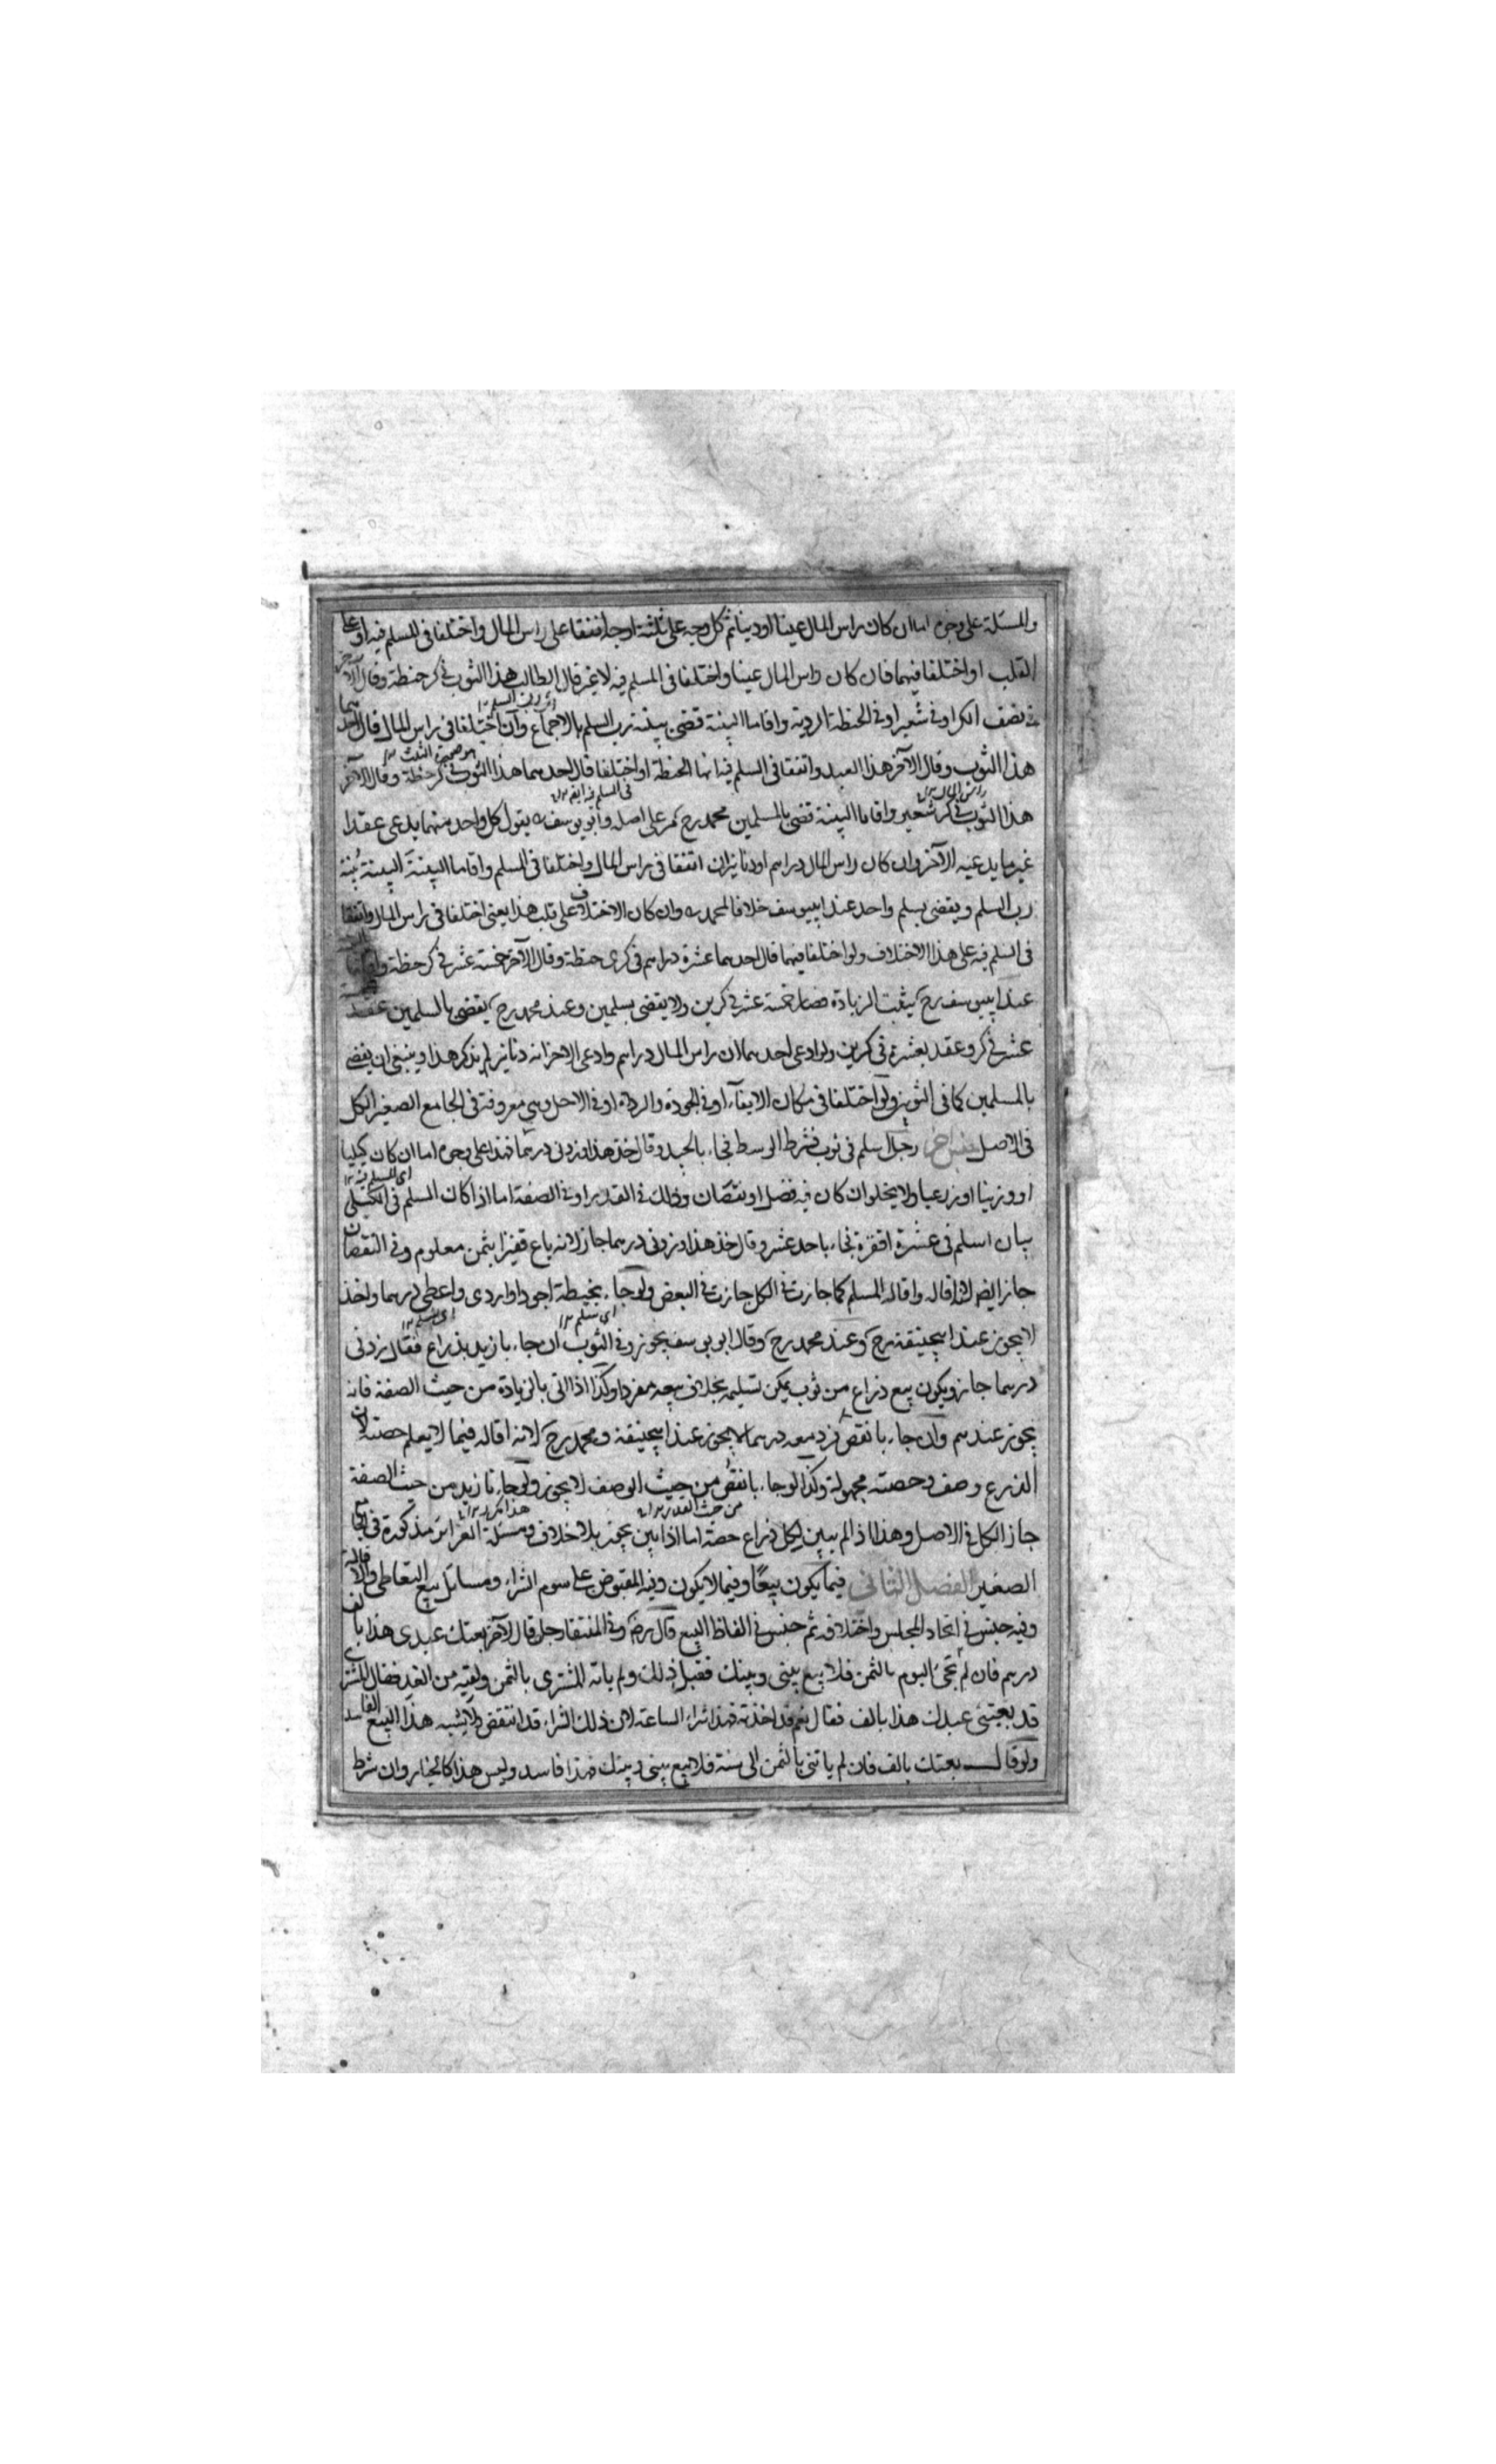 والمسئلة على وجوه اما ان كان راس المال عينا او دينا ثم كل وجه على ثلثة اوجه اتفقا على راس المال واختلفا فى المسلم فيه او على
القلب او اختلفا فيهما فان كان راس المال عينا واختلفا فى المسلم فيه لا غير قال الطالب هذا الثوب فى كر حنطة وقال الآخر
فى نصف الكر او فى شعير او فى الحنطة الردية واقاما البينة قضى ببينة رب السلم بالاجماع وان اختلفا فى راس المال قال احدهما
هذا الثوب وقال الآخر هذا العبد واتفقا فى المسلم فيه انها الحنطة او اختلفا قال احدهما هذا الثوب فى كر حنطة وقال الآخر
هذا الثوب فى كر شعير واقاما البينة قضى بالسلمين محمد رح مر على اصله وابو يوسف يقول كل واحد منهما يدعى عقدا
غير ما يدعيه الآخر وان كان راس المال دراهم او دنانير ان اتفقا فى راس المال واختلفا فى المسلم واقاما البينة البينة بينة
رب السلم ويقضى بسلم واحد عند ابيوسف خلافا لمحمد وان كان الاختلاف على قلب هذا يعنى اختلفا فى راس المال واتفقا
فى المسلم فيه على هذا الاختلاف ولو اختلفا فيهما قال احدهما عشرة دراهم فى كرى حنطة وقال الآخر خمسة عشر فى كر حنطة واقاما
عند ابيوسف رح يثبت الزيادة فصار خمسة عشر فى كرين ولا يقضى بسلمين وعند محمد رح يقضى بالسلمين عقد
عشر فى كر وعقد بعشرة فى كرين ولو ادعى احدهما ان راس المال دراهم وادعى الاخر انه دنانير لم يذكر هذا وينبغى ان يقضى
بالسلمين كما فى الثوبين ولو اختلفا فى مكان الايفاء او فى الجودة والرداة او فى الاجل وهى معروفة فى الجامع الصغير الكل
فى الاصل جنس آخر رجل اسلم فى ثوب فشرط الوسط فجاء بالجيد وقال خذ هذا وزدنى درهما فهذا على وجوه اما ان كان كيليا
او وزنيا او زرعيا ولا يخلو ان كان فيه فضل او نقصان وذلك فى القدر او فى الصفة اما اذا كان السلم فى الكيلى
بان اسلم فى عشرة اقفزة فجاء باحد عشر وقال خذ هذا وزدنى درهما جاز لانه باع قفيزا بثمن معلوم وفى النقصان
جاز ايضا لانه اقالة واقالة السلم كما جازت فى الكل جازت فى البعض ولو جاء بحنطة اجود او اردى واعطى درهما واخذ
لا يجوز عند ابيحنيفة رح وعند محمد رح وقال ابو يوسف يجوز وفى الثوب ان جاء بازيد بذراع فقال زدنى
درهما جاز ويكون بيع ذراع من ثوب يمكن تسليمه بخلاف بيعه مفردا وكذا اذا اتى بالزيادة من حيث الصفة فانه
يجوز عندهم وان جاء بانقص فرد معه درهما لا يجوز عند ابيحنيفة ومحمد رح لانه اقالة فيما لا يعلم حصته لان
الذرع وصف وحصته مجهولة وكذا لو جاء بانقص من حيث الوصف لا يجوز ولو جاء بازيد من حيث الصفة
جاز الكل فى الاصل وهذا اذا لم يبين لكل ذراع حصة اما اذا بين يجوز بلا خلاف ومسئلة الغرائر مذكورة فى الجامع
الصغير الفصل الثانى فيما يكون بيعًا وفيما لا يكون وفيه المقبوض على سوم الشراء ومسائل بيع التعاطى والاقالة
وفيه جنس فى اتحاد المجلس واختلافه ثم جنس فى الفاظ البيع قال رضه وفى المنتقا رجل قال لآخر بعتك عبدى هذا بالف
درهم فان لم تجئ اليوم بالثمن فلا بيع بينى وبينك فقبل ذلك ولم ياته المشترى بالثمن ولقيه من الغد فقال المشترى
قد بعتنى عبدك هذا بالف فقال نعم قد اخذته فهذا شراء الساعة لان ذلك الشراء قد انتقض ولا يشبه هذا البيع الفاسد
ولو قال بعتك بالف فان لم ياتنى بالثمن الى سنة فلا بيع بينى وبينك فهذا فاسد وليس هذا كالخيار وان شرط